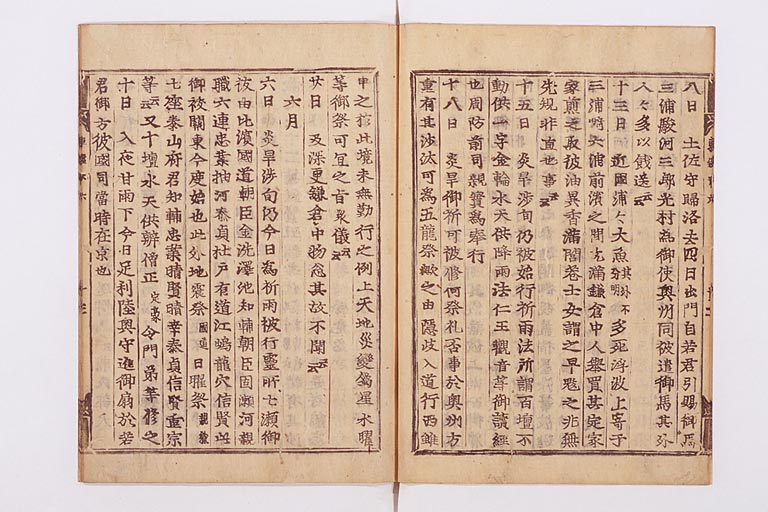 八日　土佐守歸洛去四日出門自若君引賜御馬
三浦駿河三郎光村為御使奥州同被遣御馬其外
人々多以餞送云云
十三日　近國浦々大魚其外不分明多死浮波上寄于
三浦﨑六浦前濱之間充滿鎌倉中人擧買其完家
家煎之取彼油異香滿閭巷士女謂之旱魃之兆無
先規非直也事云云
十五日　炎旱涉旬仍被始行祈雨法所謂百壇不
動供一字金輪水天供降雨法仁王觀音等御讀經
也周防前司親實為奉行
十八日　炎旱御祈可被修何祭礼否事於奥州方
重有其沙汰可為五龍祭歟之由隱岐入道行西雖
申之於此境未無勤行之例上天地災變屬星水曜
等御祭可宜之旨衆儀云云
廿日　及深更鎌倉中物忩其故不聞云云
六月
六日　炎旱涉旬仍今日為祈雨被行靈所七瀬御
祓由比濱國道朝臣金洗澤池知輔朝臣固瀬河親
職六連忠業柚河泰貞杜戸有道江嶋龍穴信賢此
御祓關東今度始也此外地震祭國道日曜祭親職
七座泰山府君知輔忠業晴賢晴幸泰貞信賢重宗
等云云又十壇水天供辨僧正定豪令門弟等修之
十日　入夜甘雨下今日足利陸奥守進御扇於若
君御方彼國司當時在京也